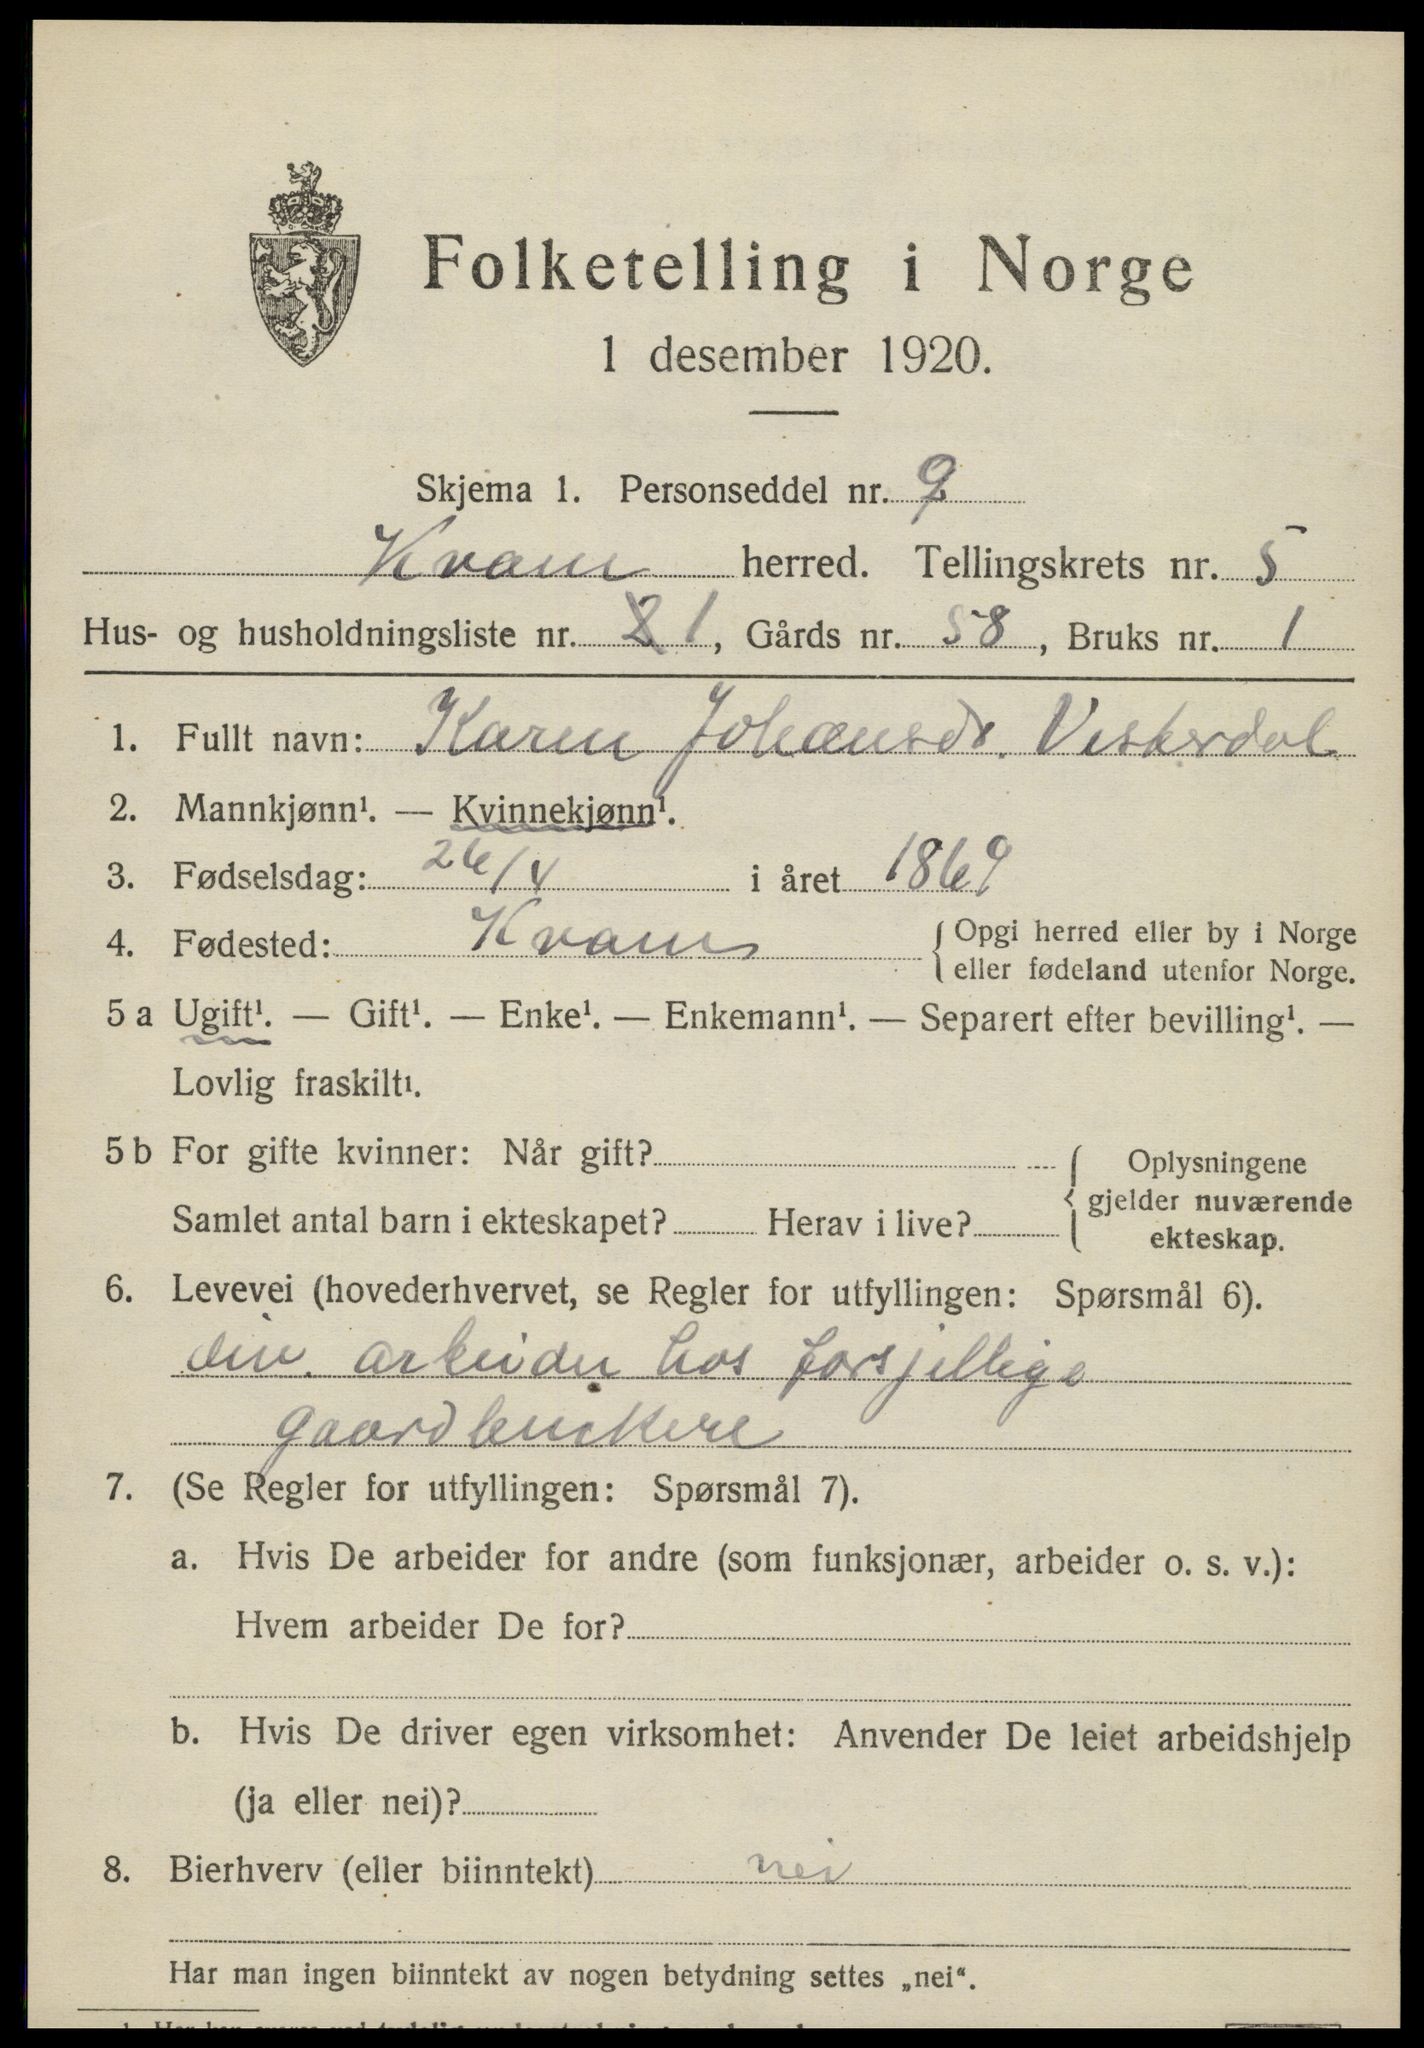 Folketelling i Norge
1 desember 1920.
Skjema 1. Personseddel nr. 9
Kvam herred. Tellingskrets nr. 5
Hus- og husholdningsliste nr. 1, Gårds nr. 58, Bruks nr. 1
1. Fullt navn: Karen Johansdr. Vesterdal
2. Mannkjønn¹. — Kvinnekjønn¹.
3. Fødselsdag: 26/4 i året 1869
4. Fødested: Kvam { Opgi herred eller by i Norge
eller fødeland utenfor Norge.
5 a Ugift¹. — Gift¹. — Enke¹. — Enkemann¹. — Separert efter bevilling¹. —
Lovlig fraskilt¹.
5 b For gifte kvinner: Når gift? { Oplysningene
gjelder nuværende
ekteskap.
Samlet antal barn i ekteskapet? Herav i live?
6. Levevei (hovederhvervet, se Regler for utfyllingen: Spørsmål 6).
div. arbeider hos forsjellige
gaardbrukere
7. (Se Regler for utfyllingen: Spørsmål 7).
a. Hvis De arbeider for andre (som funksjonær, arbeider o. s. v.):
Hvem arbeider De for?
b. Hvis De driver egen virksomhet: Anvender De leiet arbeidshjelp
(ja eller nei)?
8. Bierhverv (eller biinntekt) nei
Har man ingen biinntekt av nogen betydning settes „nei“.